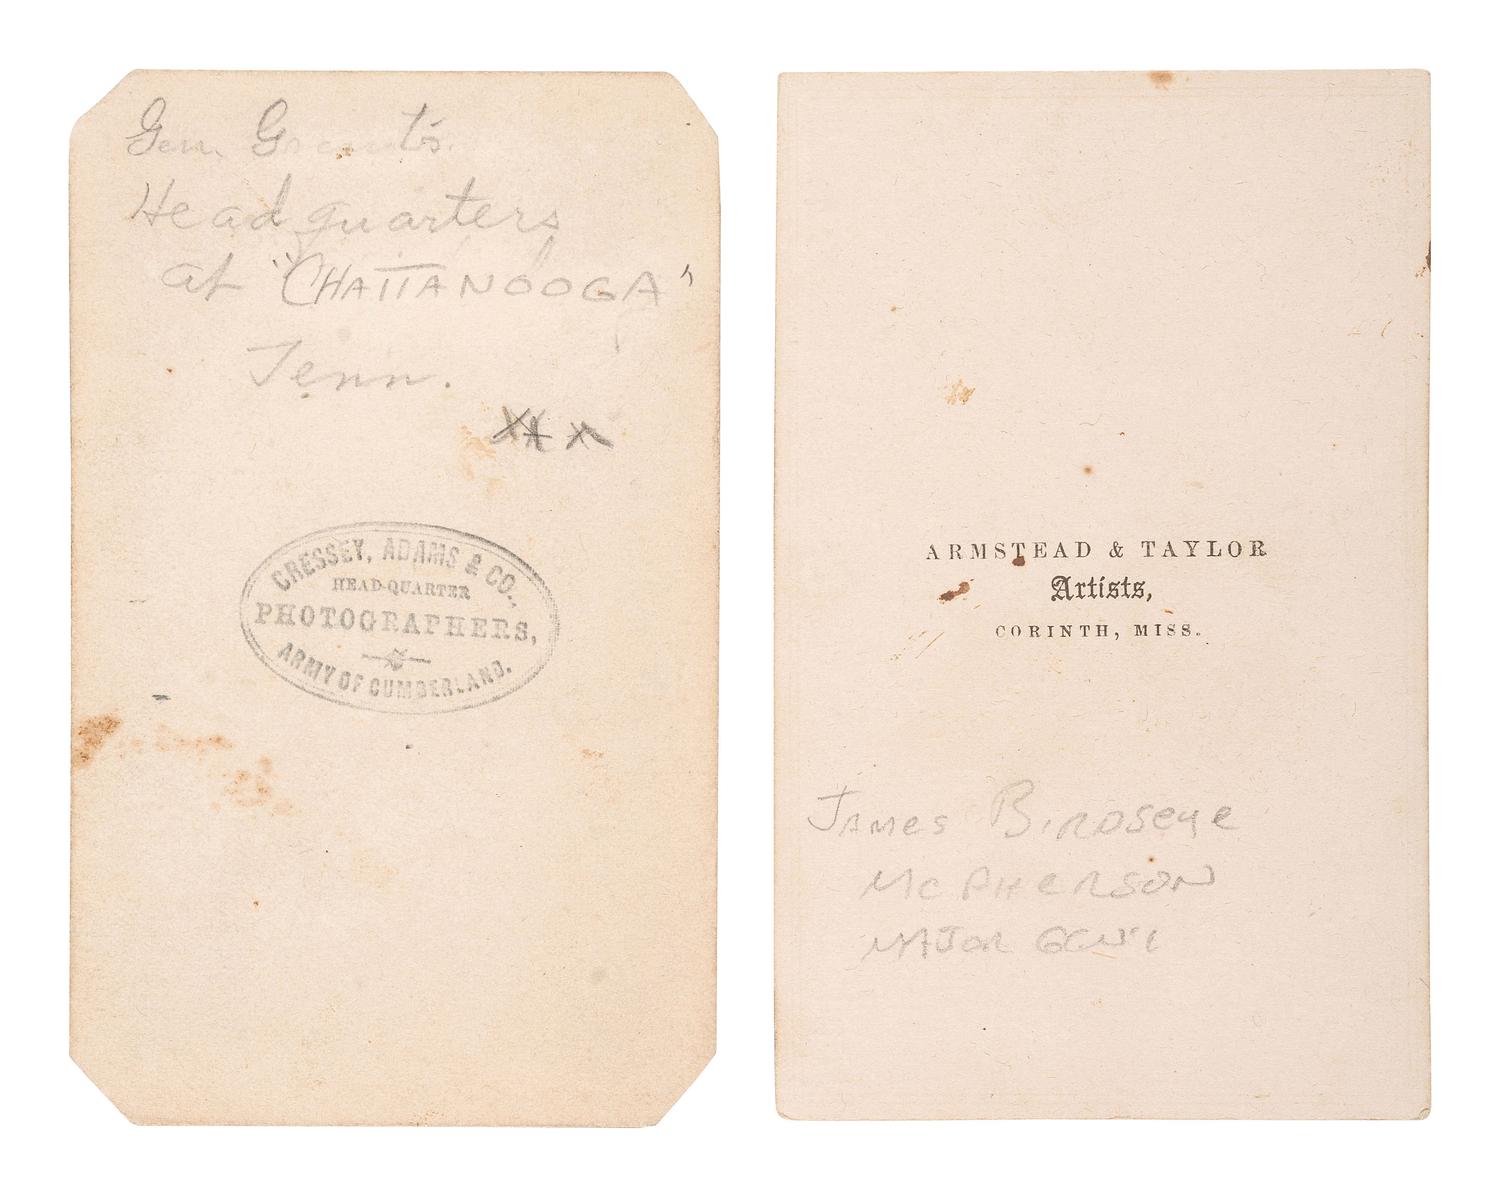 Gen. Grant's
Headquarters
at "CHATTANOOGA"
Tenn.
CRESSEY, ADAMS & CO.,
HEAD-QUARTER
PHOTOGRAPHERS,
ARMY OF CUMBERLAND.
ARMSTEAD & TAYLOR
Artists,
CORINTH, MISS.
JAMES BIRDSEYE
MCPHERSON
MAJOR GEN'L